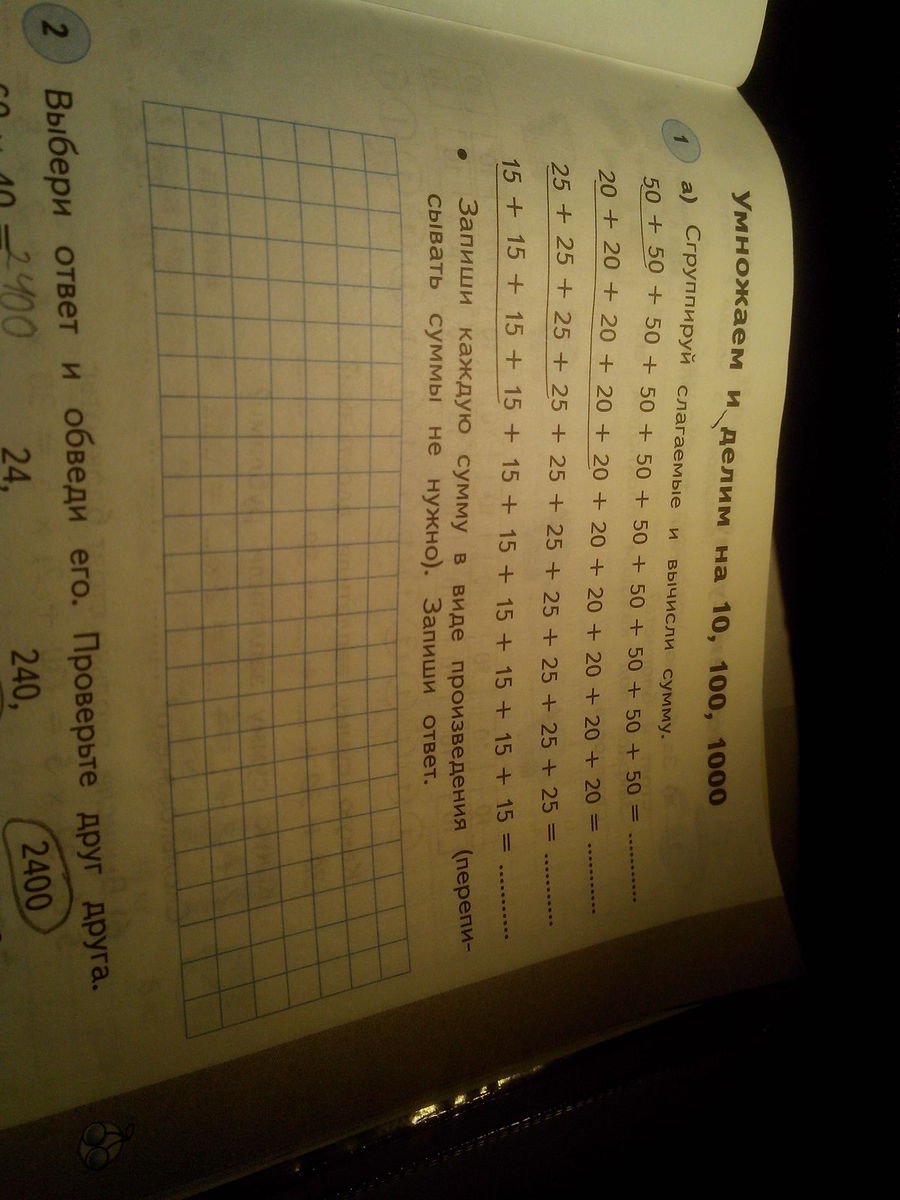 Умножаем и делим на 10, 100, 1000
1 а) Сгруппируй слагаемые и вычисли сумму.
50 + 50 + 50 + 50 + 50 + 50 + 50 + 50 + 50 + 50 = ..........
20 + 20 + 20 + 20 + 20 + 20 + 20 + 20 + 20 + 20 = ..........
25 + 25 + 25 + 25 + 25 + 25 + 25 + 25 + 25 + 25 = ..........
15 + 15 + 15 + 15 + 15 + 15 + 15 + 15 + 15 + 15 = ..........
• Запиши каждую сумму в виде произведения (перепи-
сывать суммы не нужно). Запиши ответ.
2 Выбери ответ и обведи его. Проверьте друг друга.
40 = 2400 24, 240, 2400